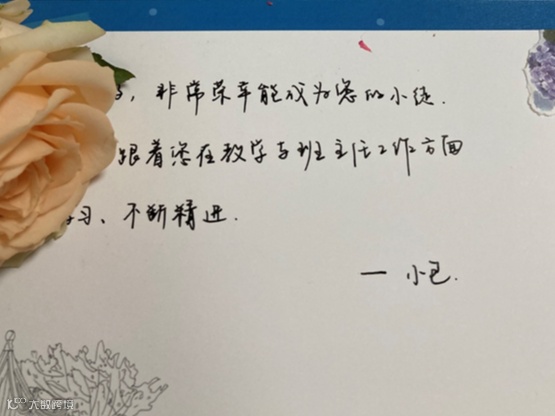 ，非常荣幸能成为您的小徒.
跟着您在教学与班主任工作方面
习、不断精进.
— 小已.
大数跨境